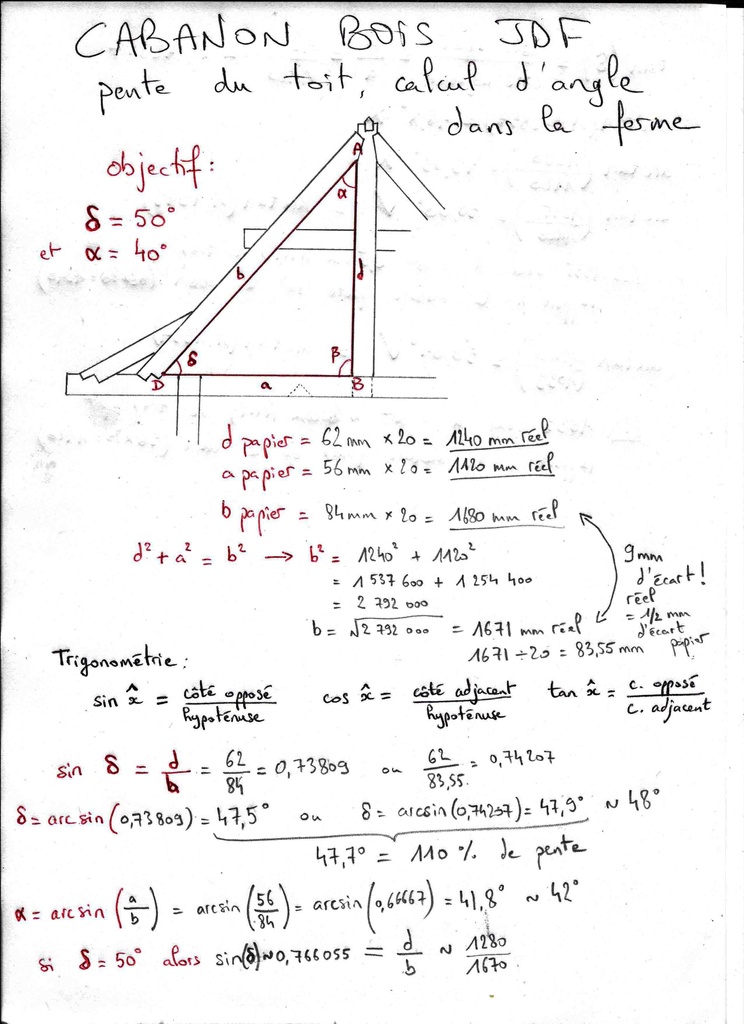 CABANON BOIS JDF
pente du toit, calcul d'angle
dans la ferme
objectif:
δ = 50°
et α = 40°
A
α
b
d
δ
β
D
a
B
d papier = 62 mm × 20 = 1240 mm réel
a papier = 56 mm × 20 = 1120 mm réel
b papier = 84 mm × 20 = 1680 mm réel
d² + a² = b² → b² = 1240² + 1120²
= 1 537 600 + 1 254 400
= 2 792 000
b = √2 792 000 = 1671 mm réel
1671 ÷ 20 = 83,55 mm
9mm
d'écart!
réel
= 1/2 mm
d'écart
papier
Trigonométrie:
sin x̂ = côté opposé / hypoténuse cos x̂ = côté adjacent / hypoténuse tan x̂ = c. opposé / c. adjacent
sin δ = d/b = 62/84 = 0,73809 ou 62/83,55 = 0,74207
δ = arc sin (0,73809) = 47,5° ou δ = arcsin (0,74207) = 47,9° ~ 48°
47,7° = 110 % de pente
α = arcsin (a/b) = arcsin (56/84) = arcsin (0,66667) = 41,8° ~ 42°
si δ = 50° alors sin(δ) ~ 0,766055 = d/b ~ 1280/1670